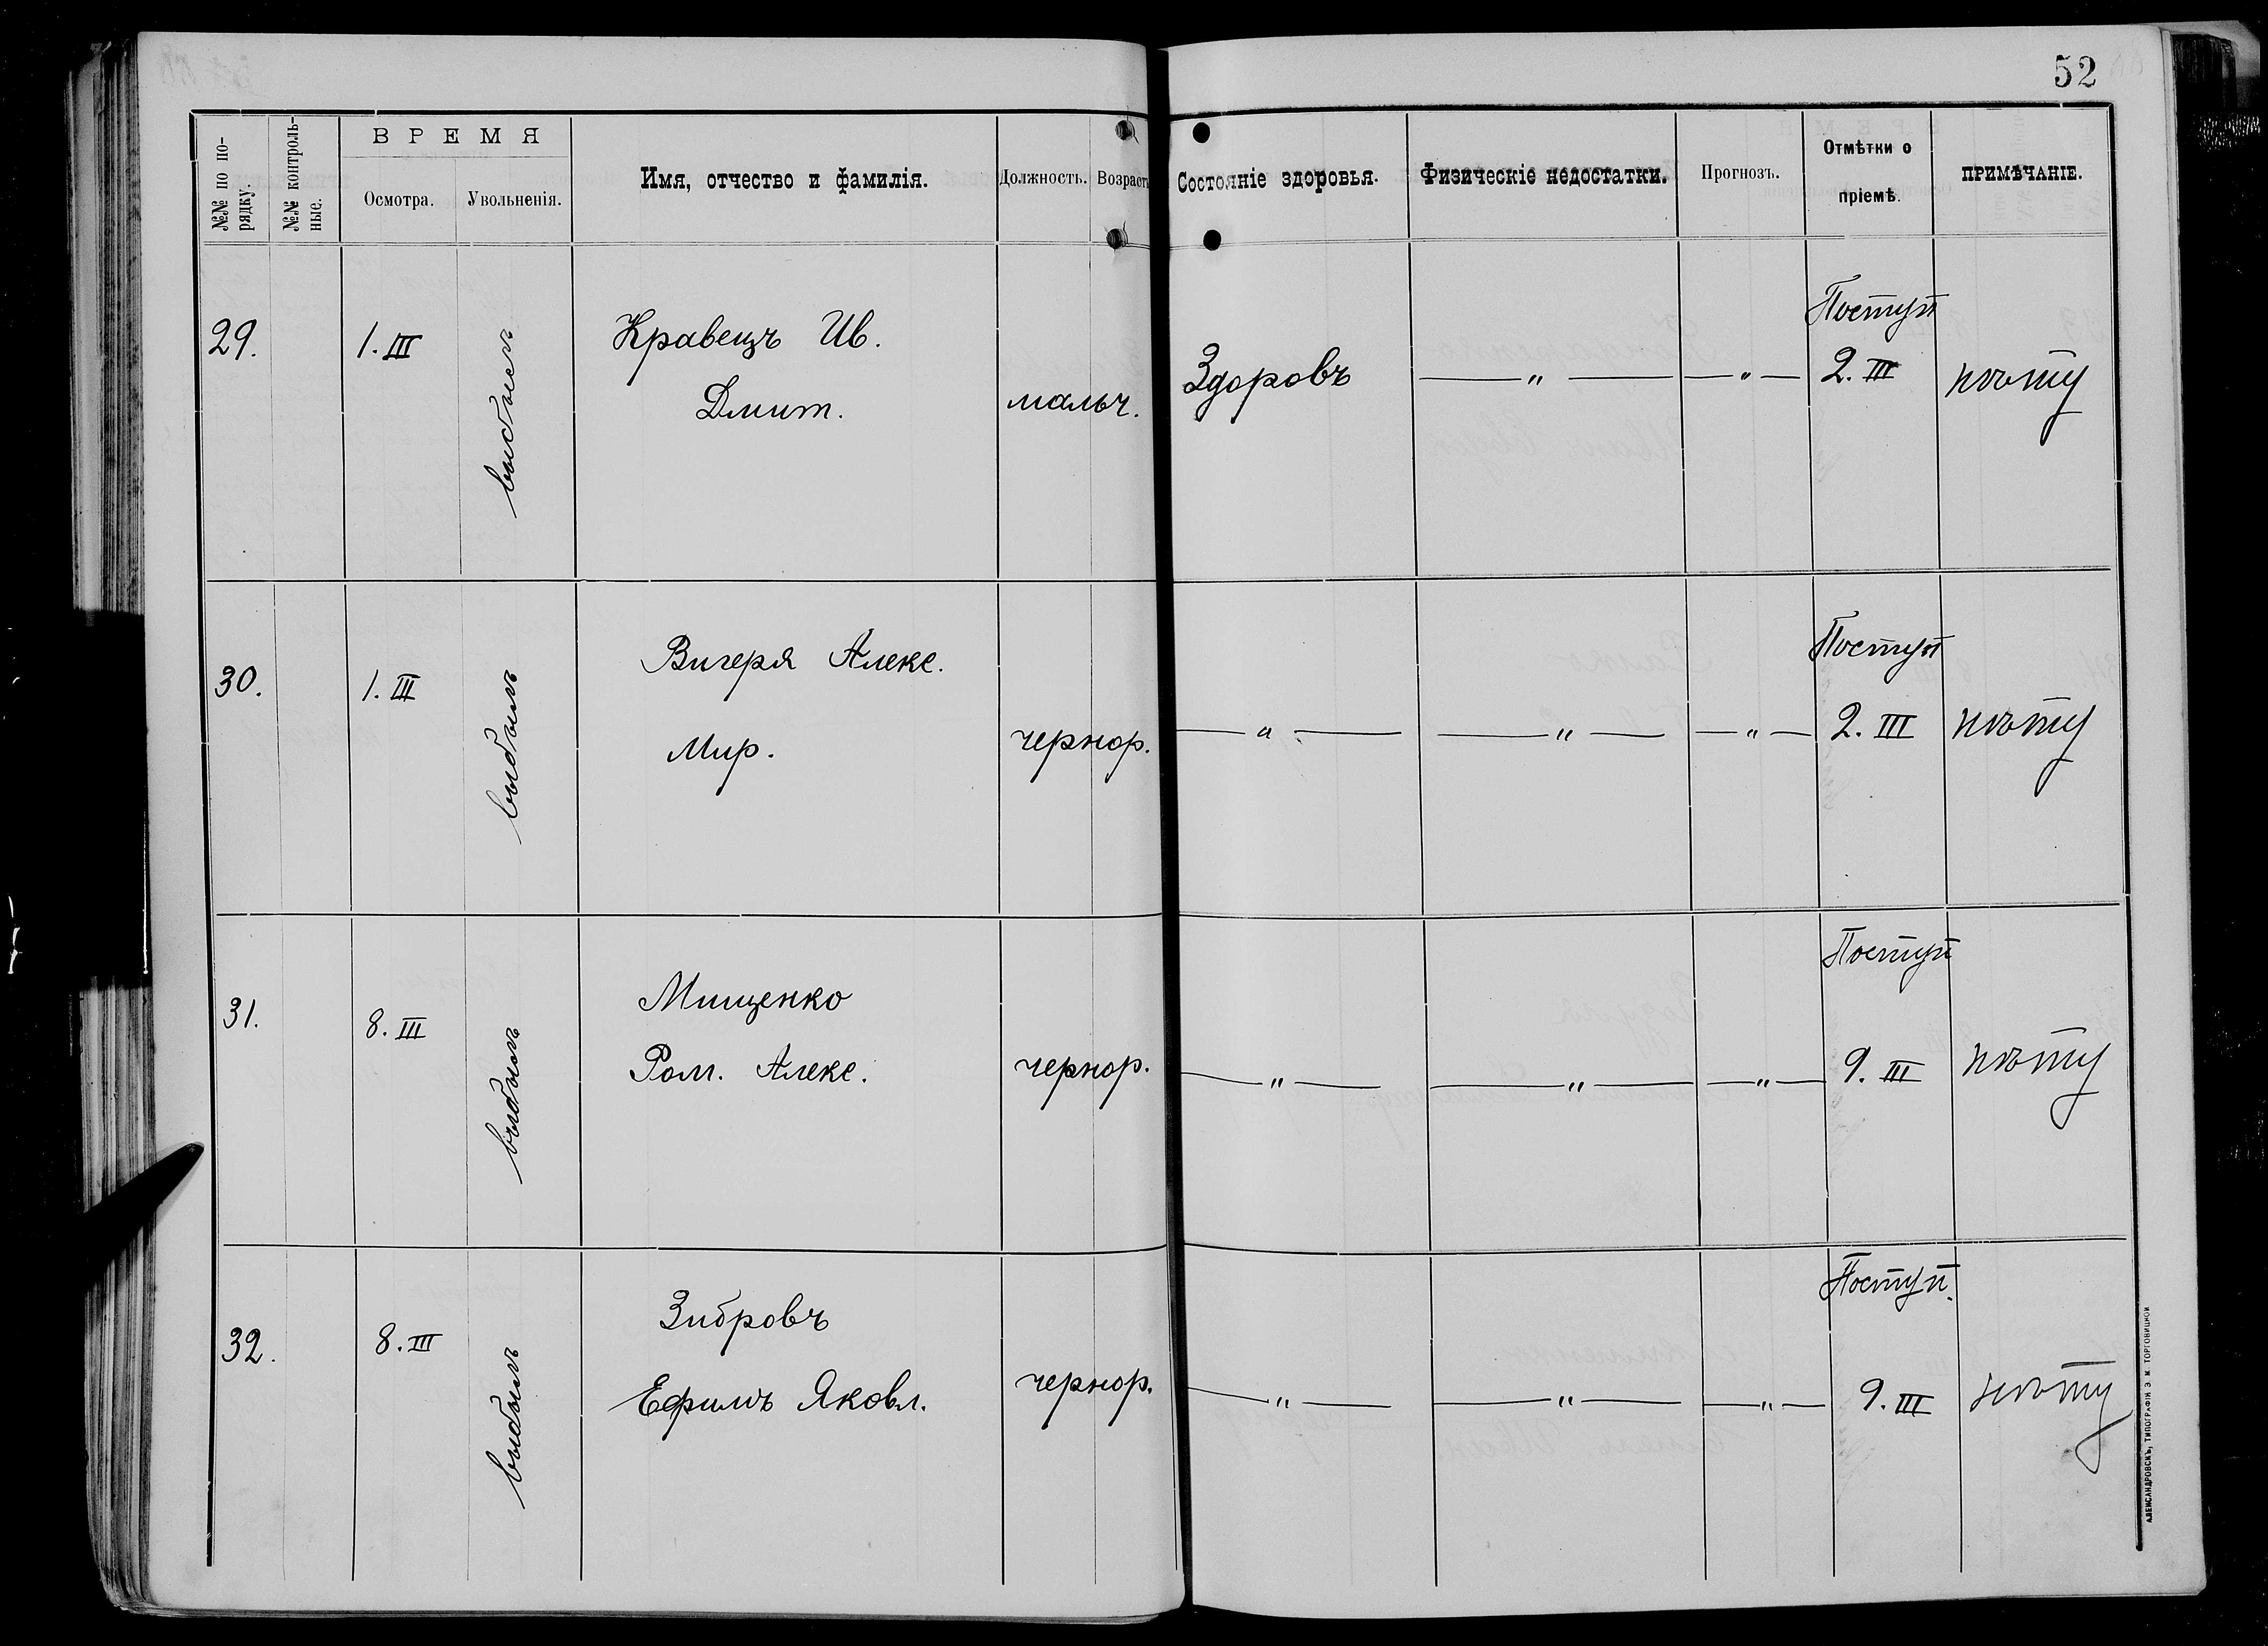 52
№№ по по-
рядку.
№№ контроль-
ные.
ВРЕМЯ
Осмотра.
Увольненія.
Имя, отчество и фамилія.
Должность.
Возрастъ
Состояніе здоровья.
Физическіе недостатки.
Прогнозъ.
Отмѣтки о
пріемѣ.
ПРИМѢЧАНІЕ.
29.
1. III
выбылъ
Кравецъ Ив.
Дмит.
мальч.
Здоровъ
— " —
— " —
Поступ
2. III
30.
1. III
выбылъ
Вигеря Алекс.
Мир.
чернор.
— " —
— " —
— " —
Поступ
2. III
31.
8. III
выбылъ
Мищенко
Ром. Алекс.
чернор.
— " —
— " —
— " —
Поступ
9. III
32.
8. III
выбылъ
Зибровъ
Ефимъ Яковл.
чернор.
— " —
— " —
— " —
Поступ.
9. III
АЛЕКСАНДРОВСКЪ, ТИПОГРАФІЯ Э. М. ТОРГОВИЦКОЙ